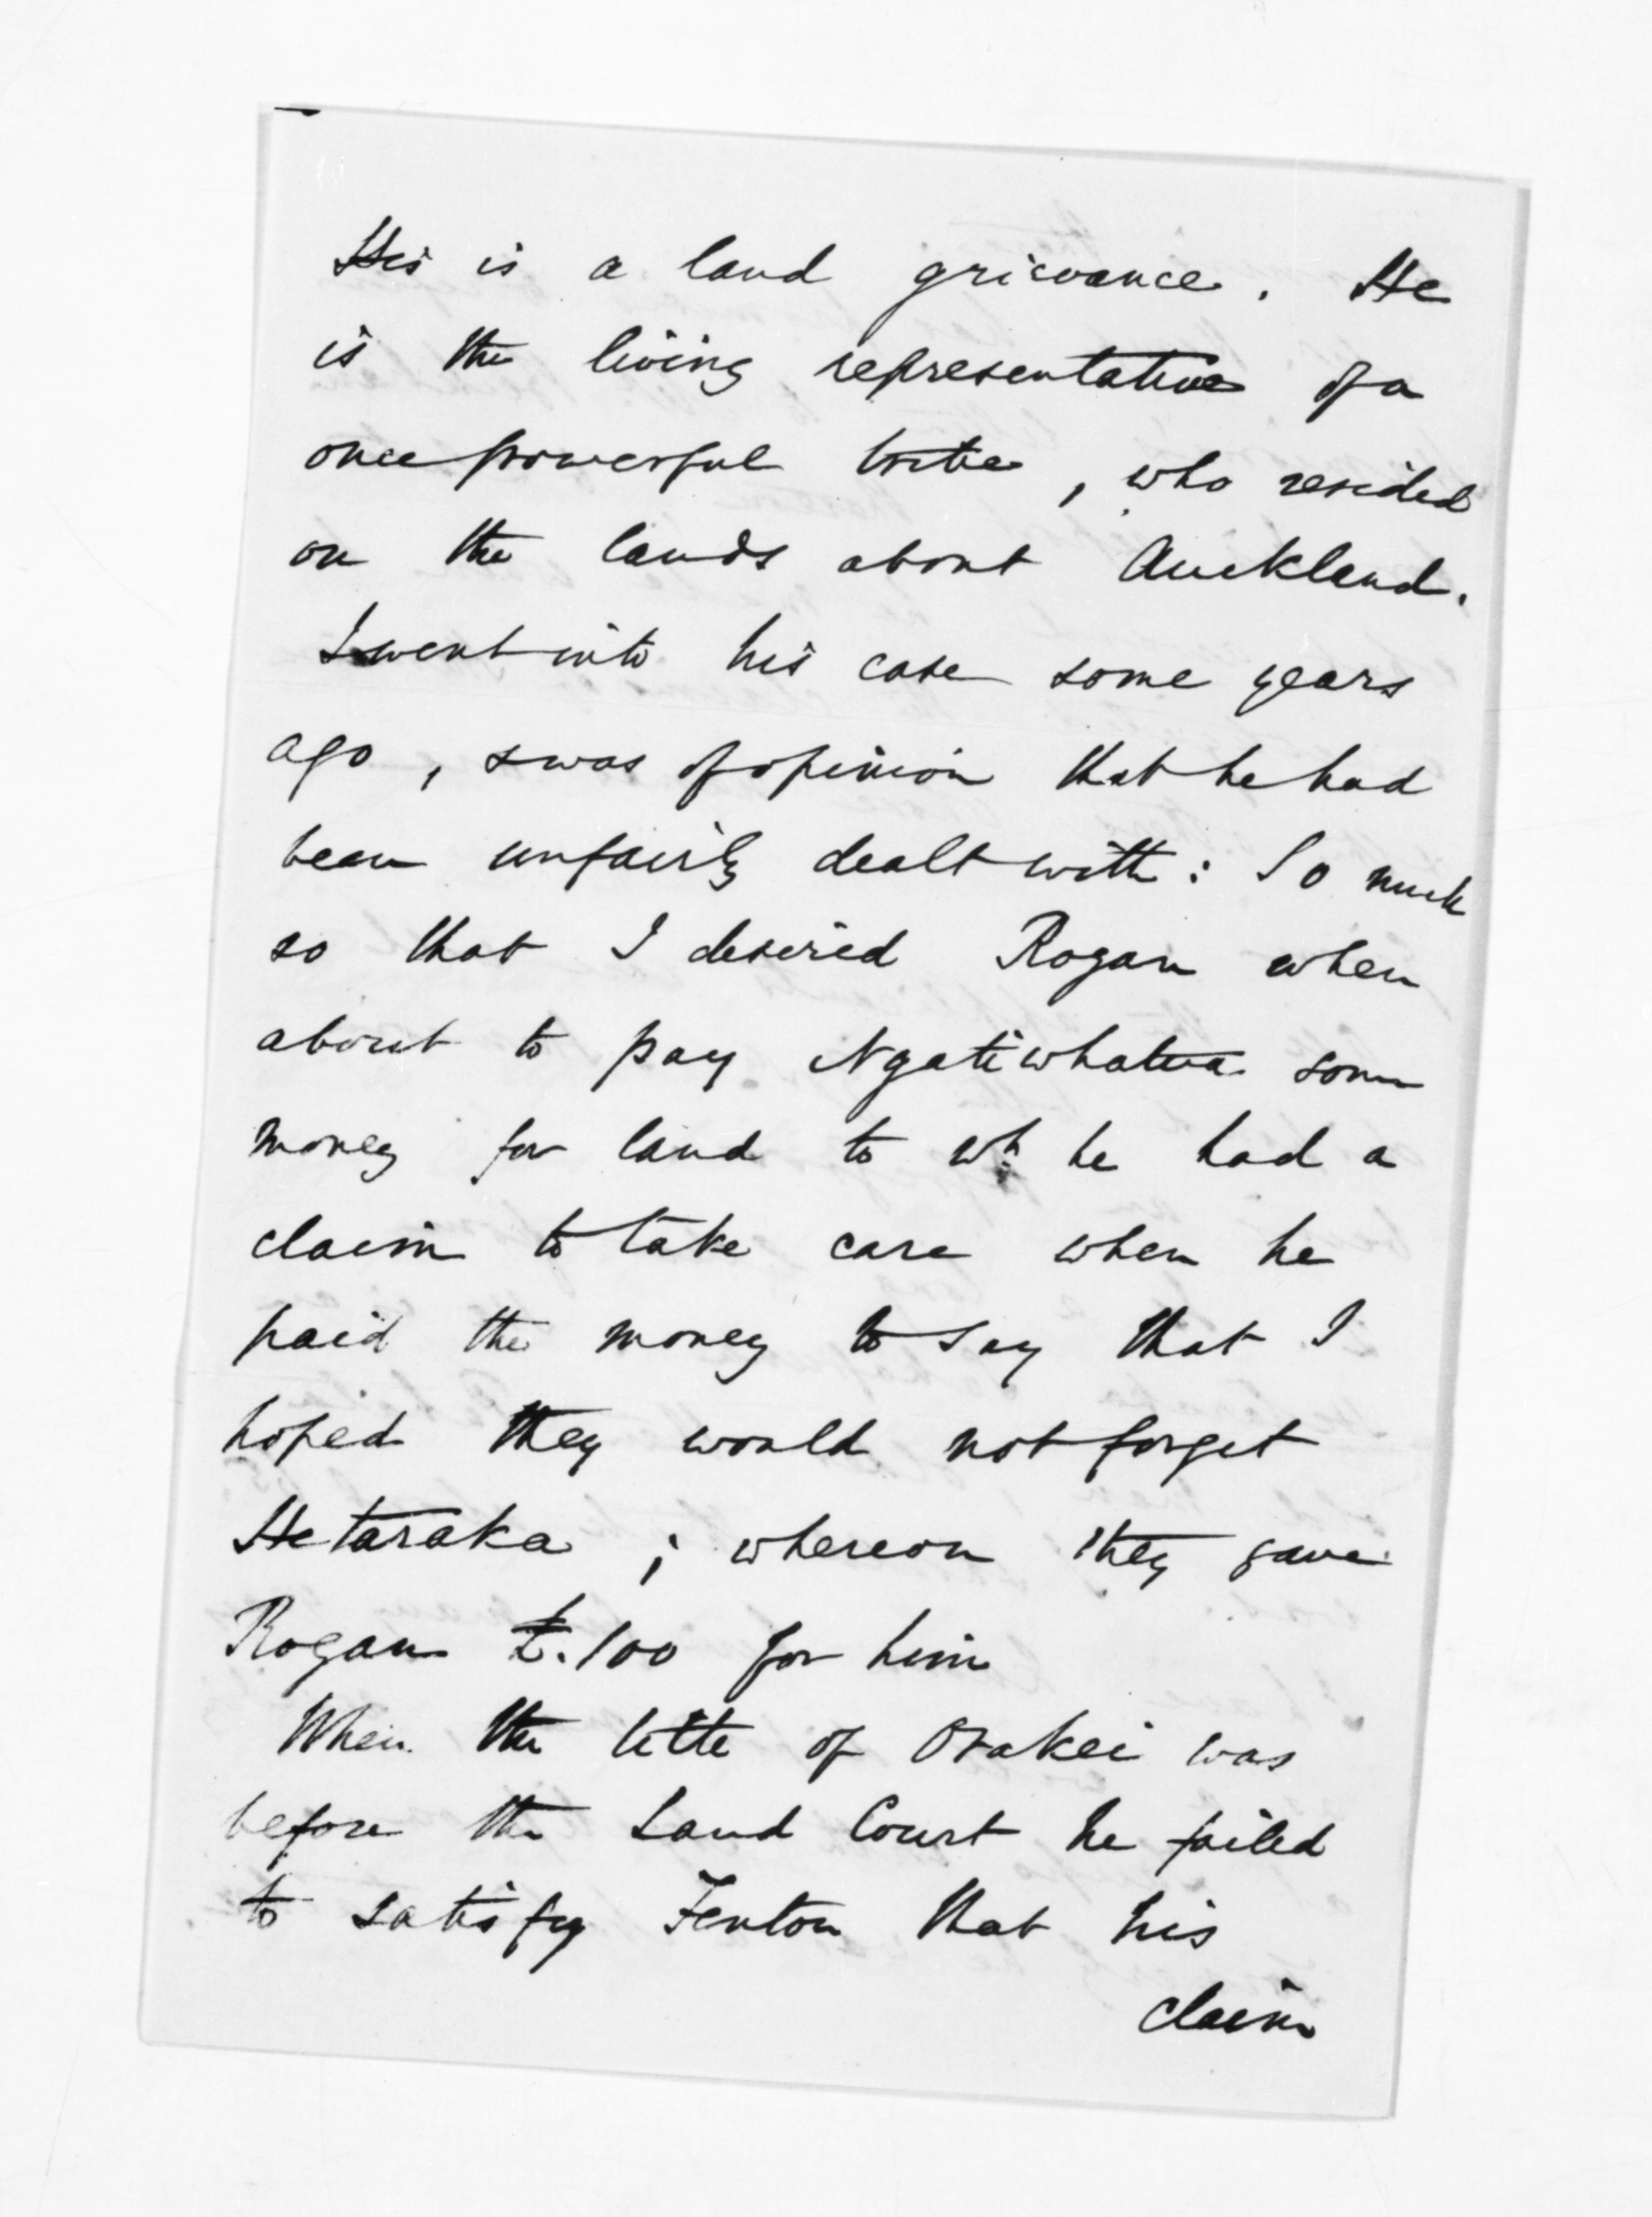 His is a land grievance. He
is the living representative of a
once powerful tribe, who resided
on the lands about Auckland.
I went into his case some years
ago, & was of opinion that he had
been unfairly dealt with: So much
so that I desired Rogan when
about to pay Ngatiwhatua some
money for land to wh he had a
claim to take care when he
paid the money to say that I
hoped they would not forget
Hetaraka; whereon they gave
Rogan £.100 for him
When the title of Orakei was
before the Land Court he failed
to satisfy Fenton that his
claim